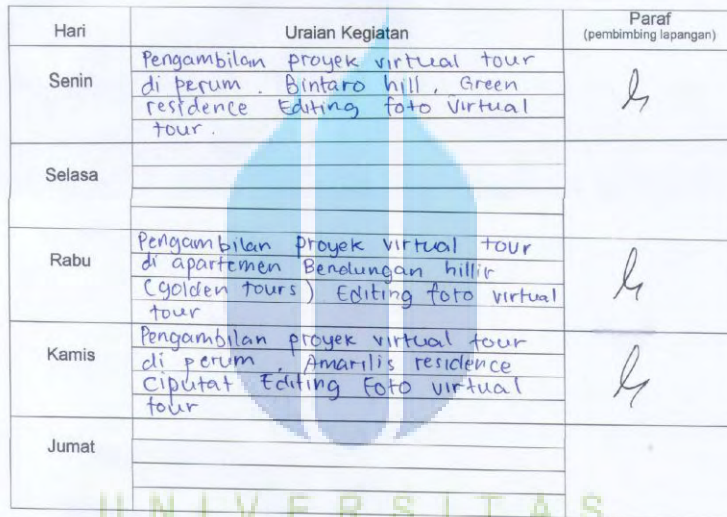 Hari
Uraian Kegiatan
Paraf
(pembimbing lapangan)
Senin
Pengambilan proyek virtual tour
di perum. Bintaro hill, Green
residence Editing foto virtual
tour.
Selasa
Rabu
Pengambilan proyek virtual tour
di apartemen Bendungan hillir
(golden tours) Editing foto virtual
tour
Kamis
Pengambilan proyek virtual tour
di perum. Amarilis residence
Ciputat Editing Foto virtual
tour
Jumat
UNIVERSITAS